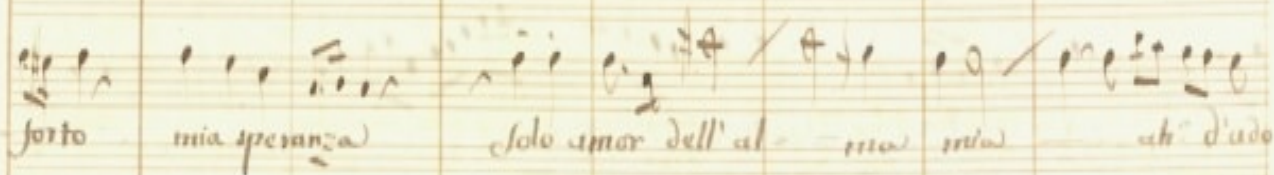 forto mia speranza solo amor dell' al ma mia ah d'ado